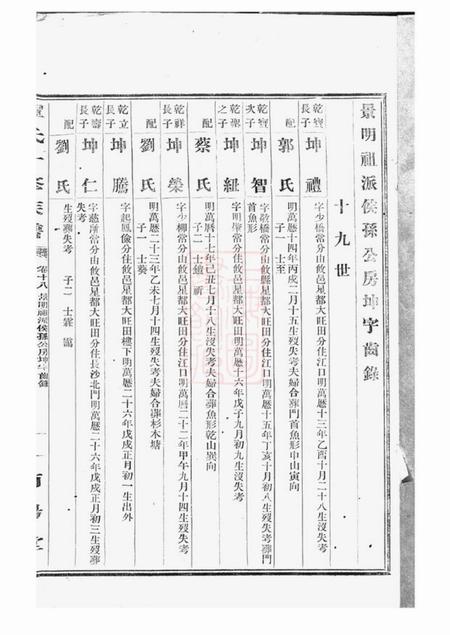 景明祖派侯孫公房坤字齒錄
十九世
乾寶長子
坤禮
字少橋當分山攸邑星都大旺田分住江口明萬曆十三年乙酉十月二十八生沒失考
配
郭氏
明萬曆十四年丙戌二月十五生歿失考夫婦合葬門首魚形申山寅向
子一 士至
乾寶次子
坤智
字敬橋當分山攸縣星都大旺田分住江口明萬曆十五年丁亥十月初八生歿失考葬門首魚形
乾之子
坤祉
字明當分山攸邑星都大旺田分住江口明萬曆十六年戊子九月初九生沒失考
配
蔡氏
明萬曆十七年己丑七月十八生沒失考夫婦合葬魚形乾山巽向
子二 士
乾祥長子
坤榮
字少柳當分山攸邑星都大旺田分住江口明萬曆二十二年甲午九月十四生歿失考
配
劉氏
明萬曆二十三年乙未七月十四生歿失考夫婦合葬杉木塘
子一 士葵
乾立長子
坤騰
字起鳳儉當分住攸邑星都大旺田樓下明萬曆二十六年戊戌正月初一生出外
乾壽長子
坤仁
字慈當分山攸邑星都大旺田分住長沙北門明萬曆二十六年戊戌正月初三生歿葬
配
劉氏
生歿葬失考
子二 士霖
卷十八 景明祖派侯孫公房坤字齒錄